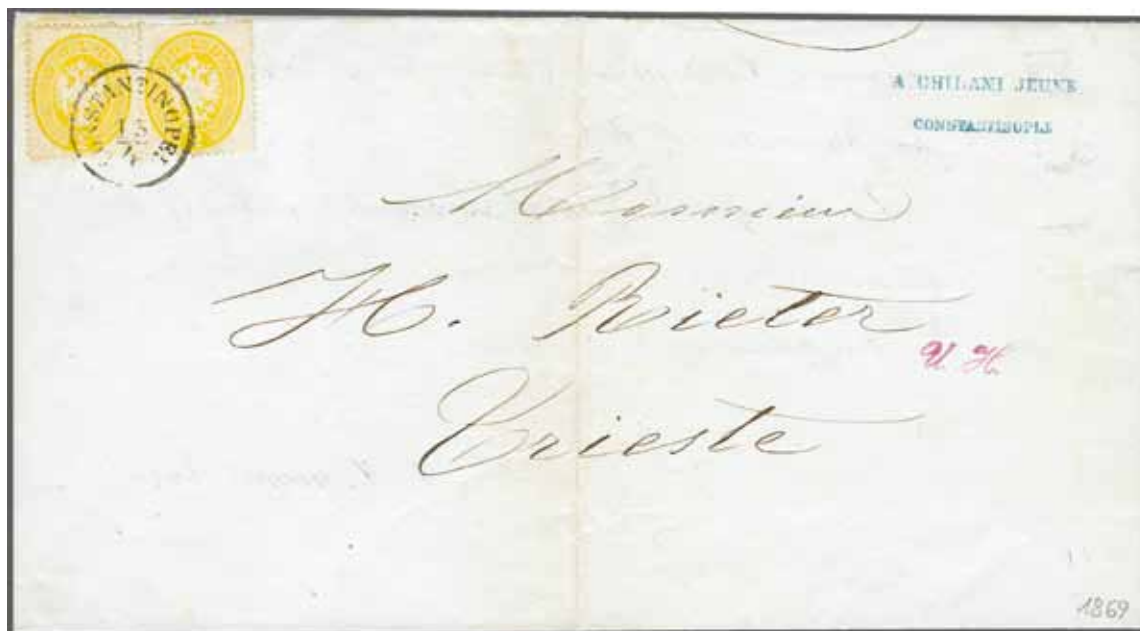 CONSTANTINOPEL
A GHILANI JEUNE
CONSTANTINOPLE
Monsieur
H. Rieter
Trieste
1869